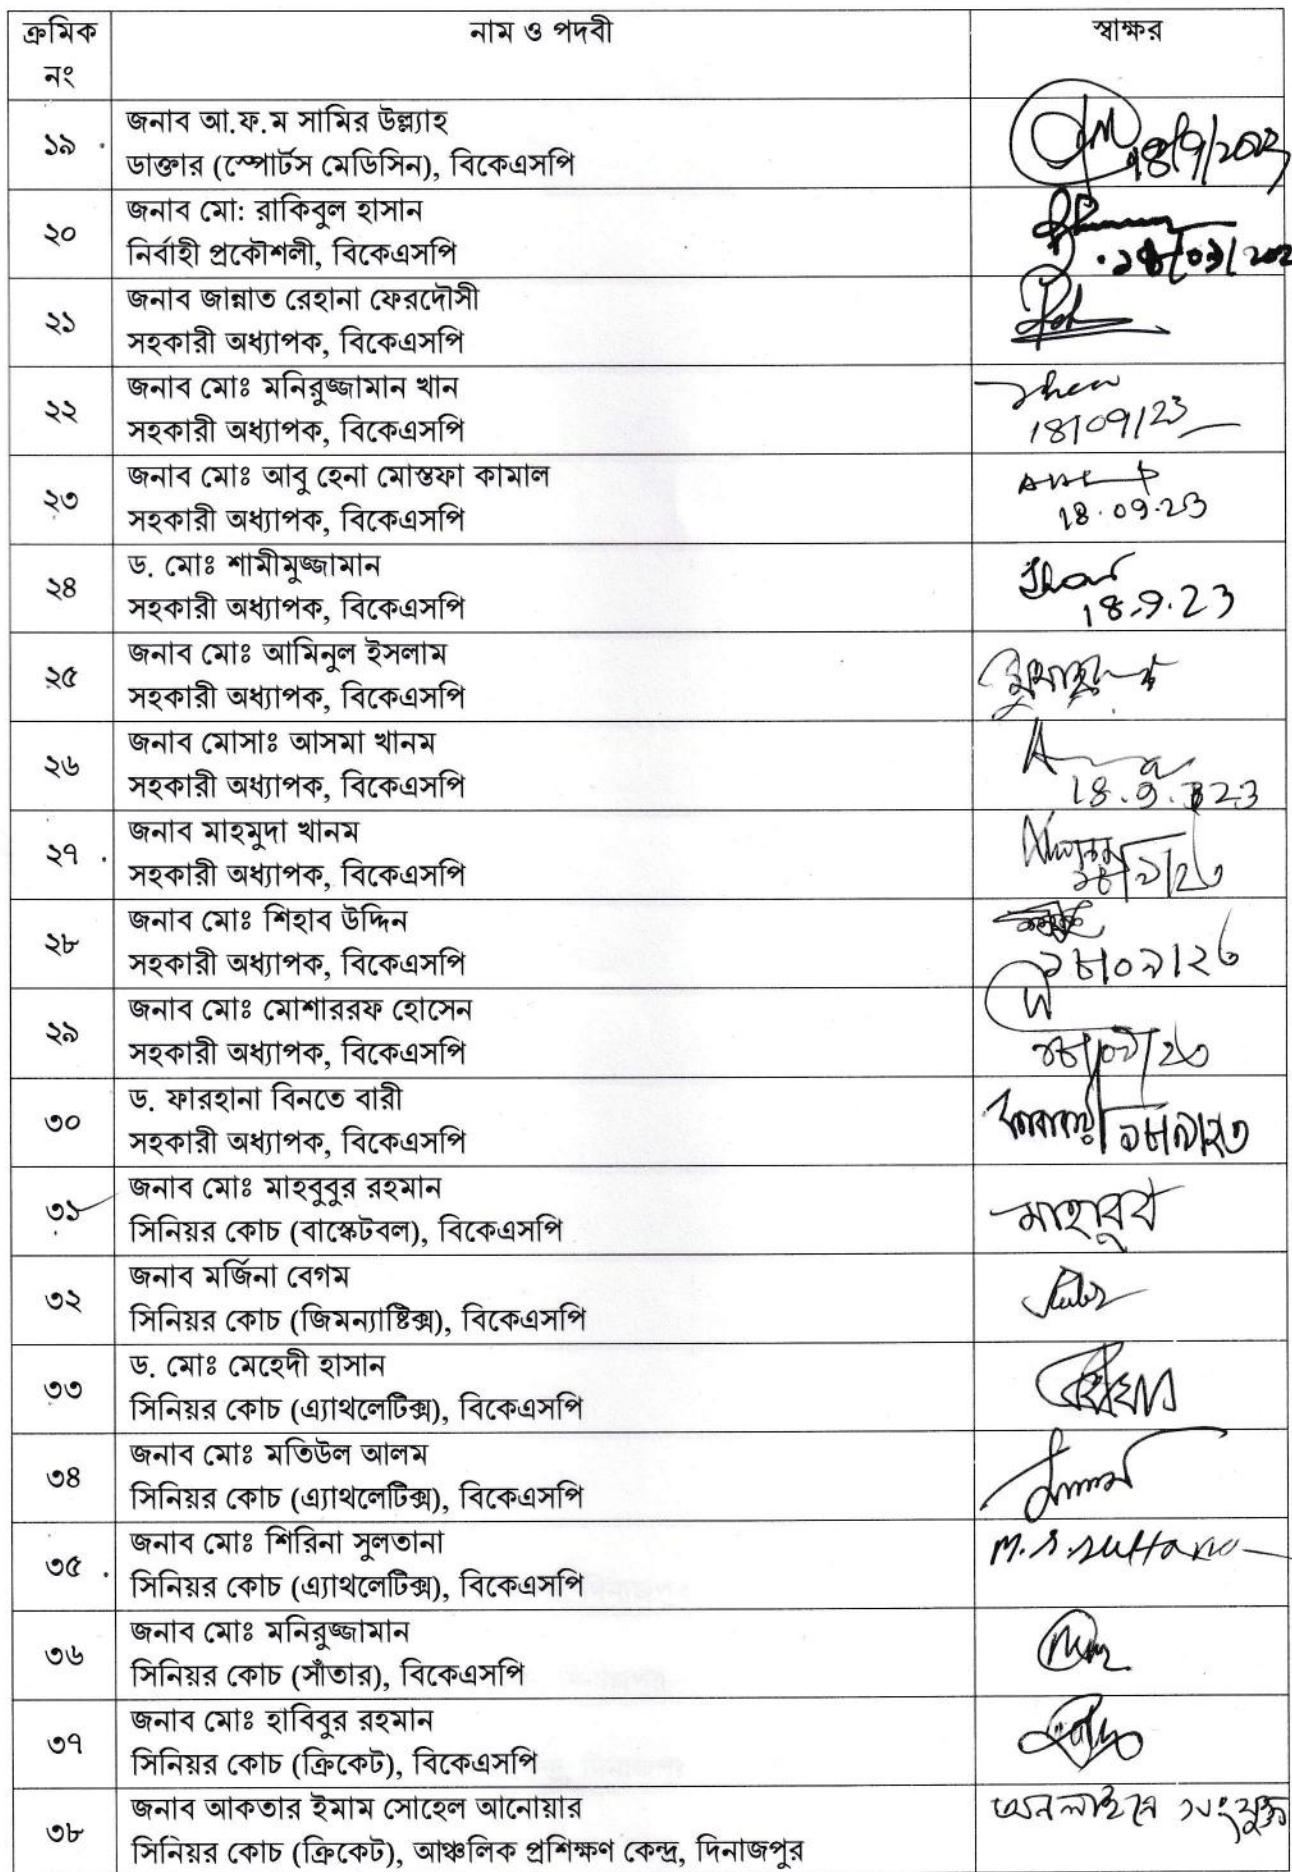 ক্রমিক নং নাম ও পদবী স্বাক্ষর
১৯ জনাব আ.ফ.ম সামির উল্ল্যাহ
ডাক্তার (স্পোর্টস মেডিসিন), বিকেএসপি
18/9/2023
২০ জনাব মো: রাকিবুল হাসান
নির্বাহী প্রকৌশলী, বিকেএসপি
২১ জনাব জান্নাত রেহানা ফেরদৌসী
সহকারী অধ্যাপক, বিকেএসপি
২২ জনাব মোঃ মনিরুজ্জামান খান
সহকারী অধ্যাপক, বিকেএসপি
18/09/23
২৩ জনাব মোঃ আবু হেনা মোস্তফা কামাল
সহকারী অধ্যাপক, বিকেএসপি
18.09.23
২৪ ড. মোঃ শামীমুজ্জামান
সহকারী অধ্যাপক, বিকেএসপি
18.9.23
২৫ জনাব মোঃ আমিনুল ইসলাম
সহকারী অধ্যাপক, বিকেএসপি
২৬ জনাব মোসাঃ আসমা খানম
সহকারী অধ্যাপক, বিকেএসপি
২৭ জনাব মাহমুদা খানম
সহকারী অধ্যাপক, বিকেএসপি
১৮/৯/২৩
২৮ জনাব মোঃ শিহাব উদ্দিন
সহকারী অধ্যাপক, বিকেএসপি
১৮/০৯/২৩
২৯ জনাব মোঃ মোশাররফ হোসেন
সহকারী অধ্যাপক, বিকেএসপি
১৮/০৯/২৩
৩০ ড. ফারহানা বিনতে বারী
সহকারী অধ্যাপক, বিকেএসপি
১৮/৯/২৩
৩১ জনাব মোঃ মাহবুবুর রহমান
সিনিয়র কোচ (বাস্কেটবল), বিকেএসপি
৩২ জনাব মর্জিনা বেগম
সিনিয়র কোচ (জিমন্যাষ্টিক্স), বিকেএসপি
৩৩ ড. মোঃ মেহেদী হাসান
সিনিয়র কোচ (এ্যাথলেটিক্স), বিকেএসপি
৩৪ জনাব মোঃ মতিউল আলম
সিনিয়র কোচ (এ্যাথলেটিক্স), বিকেএসপি
৩৫ জনাব মোঃ শিরিনা সুলতানা
সিনিয়র কোচ (এ্যাথলেটিক্স), বিকেএসপি
M. S. Sultana
৩৬ জনাব মোঃ মনিরুজ্জামান
সিনিয়র কোচ (সাঁতার), বিকেএসপি
৩৭ জনাব মোঃ হাবিবুর রহমান
সিনিয়র কোচ (ক্রিকেট), বিকেএসপি
৩৮ জনাব আকতার ইমাম সোহেল আনোয়ার
সিনিয়র কোচ (ক্রিকেট), আঞ্চলিক প্রশিক্ষণ কেন্দ্র, দিনাজপুর
অনলাইনে সংযুক্ত